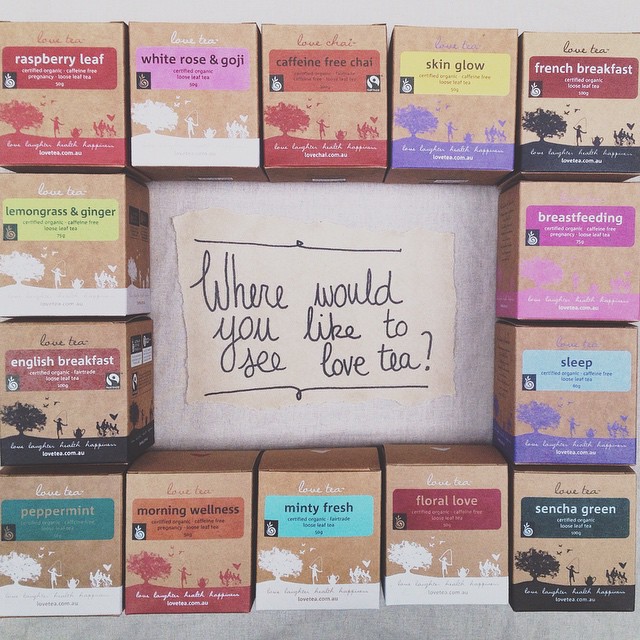 love tea
raspberry leaf
certified organic · caffeine free
pregnancy · loose leaf tea
50g
love laughter health happiness
lovetea.com.au
love tea
white rose & goji
certified organic · caffeine free
loose leaf tea
50g
love laughter health happiness
lovetea.com.au
love chai
caffeine free chai
certified organic · fairtrade
caffeine free · loose leaf tea
love laughter health happiness
lovechai.com.au
love tea
skin glow
certified organic · caffeine free
loose leaf tea
love laughter health happiness
lovetea.com.au
love tea
french breakfast
certified organic
loose leaf tea
100g
love laughter health happiness
lovetea.com.au
love tea
lemongrass & ginger
certified organic · caffeine free
loose leaf tea
75g
love laughter health happiness
lovetea.com.au
Where would
you like to
see love tea?
love tea
breastfeeding
certified organic · caffeine free
pregnancy · loose leaf tea
75g
love laughter health happiness
lovetea.com.au
love tea
english breakfast
certified organic · fairtrade
loose leaf tea
100g
love laughter health happiness
lovetea.com.au
love tea
sleep
certified organic · caffeine free
loose leaf tea
love laughter health happiness
lovetea.com.au
love tea
peppermint
certified organic · caffeine free
loose leaf tea
love laughter health happiness
lovetea.com.au
love tea
morning wellness
certified organic · caffeine free
pregnancy · loose leaf tea
50g
love laughter health happiness
lovetea.com.au
love tea
minty fresh
certified organic · fairtrade
loose leaf tea
50g
love laughter health happiness
lovetea.com.au
love tea
floral love
certified organic
loose leaf tea
love laughter health happiness
lovetea.com.au
love tea
sencha green
certified organic
loose leaf tea
100g
love laughter health happiness
lovetea.com.au